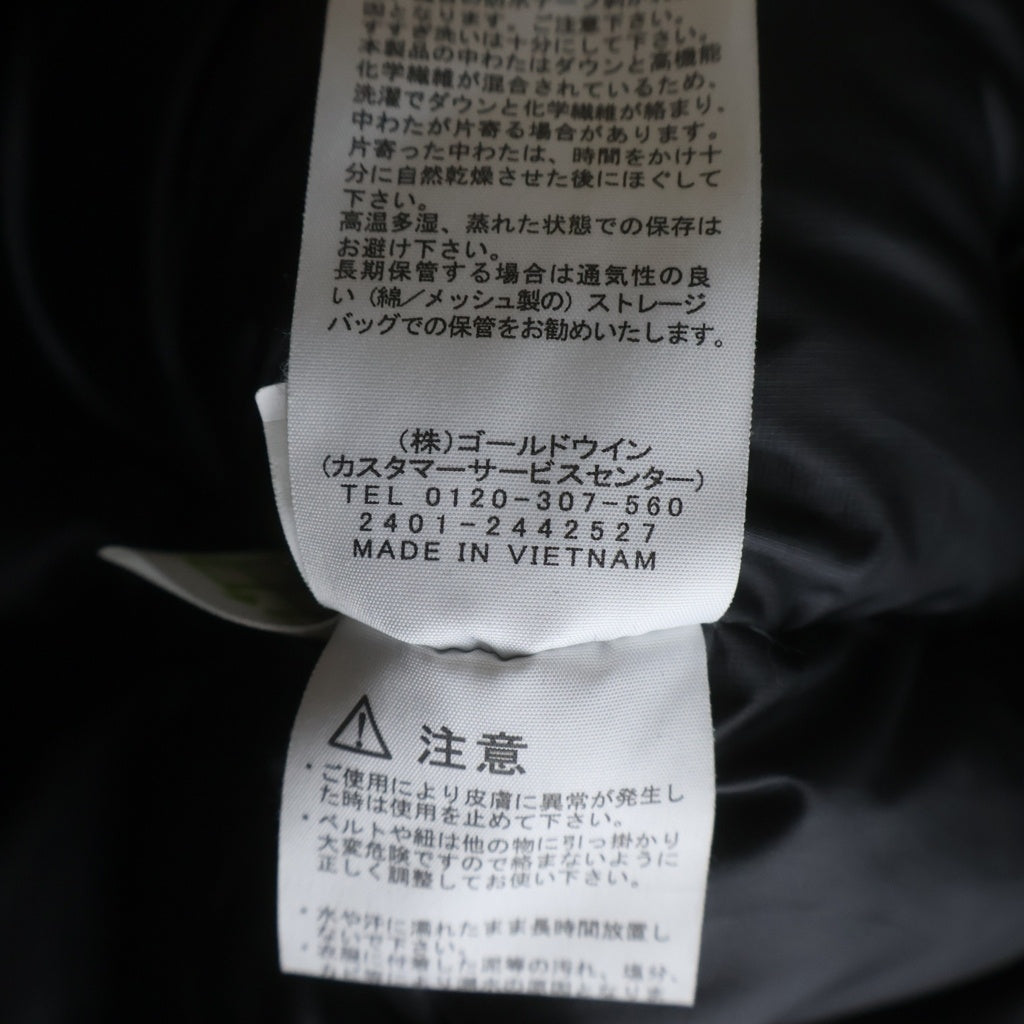 因となります。ご注意下さい。
すすぎ洗いは十分にして下さい。
本製品の中わたはダウンと高機能
化学繊維が混合されているため、
洗濯でダウンと化学繊維が絡まり、
中わたが片寄る場合があります。
片寄った中わたは、時間をかけ十
分に自然乾燥させた後にほぐして
下さい。
高温多湿、蒸れた状態での保存は
お避け下さい。
長期保管する場合は通気性の良
い（綿／メッシュ製の）ストレージ
バッグでの保管をお勧めいたします。
（株）ゴールドウイン
（カスタマーサービスセンター）
TEL 0120-307-560
2401-2442527
MADE IN VIETNAM
注意
・ご使用により皮膚に異常が発生し
た時は使用を止めて下さい。
・ベルトや紐は他の物に引っ掛かり
大変危険ですので絡まないように
正しく調整してお使い下さい。
・水や汗に濡れたまま長時間放置し
ないで下さい。
・衣服に付着した泥等の汚れ、塩分、